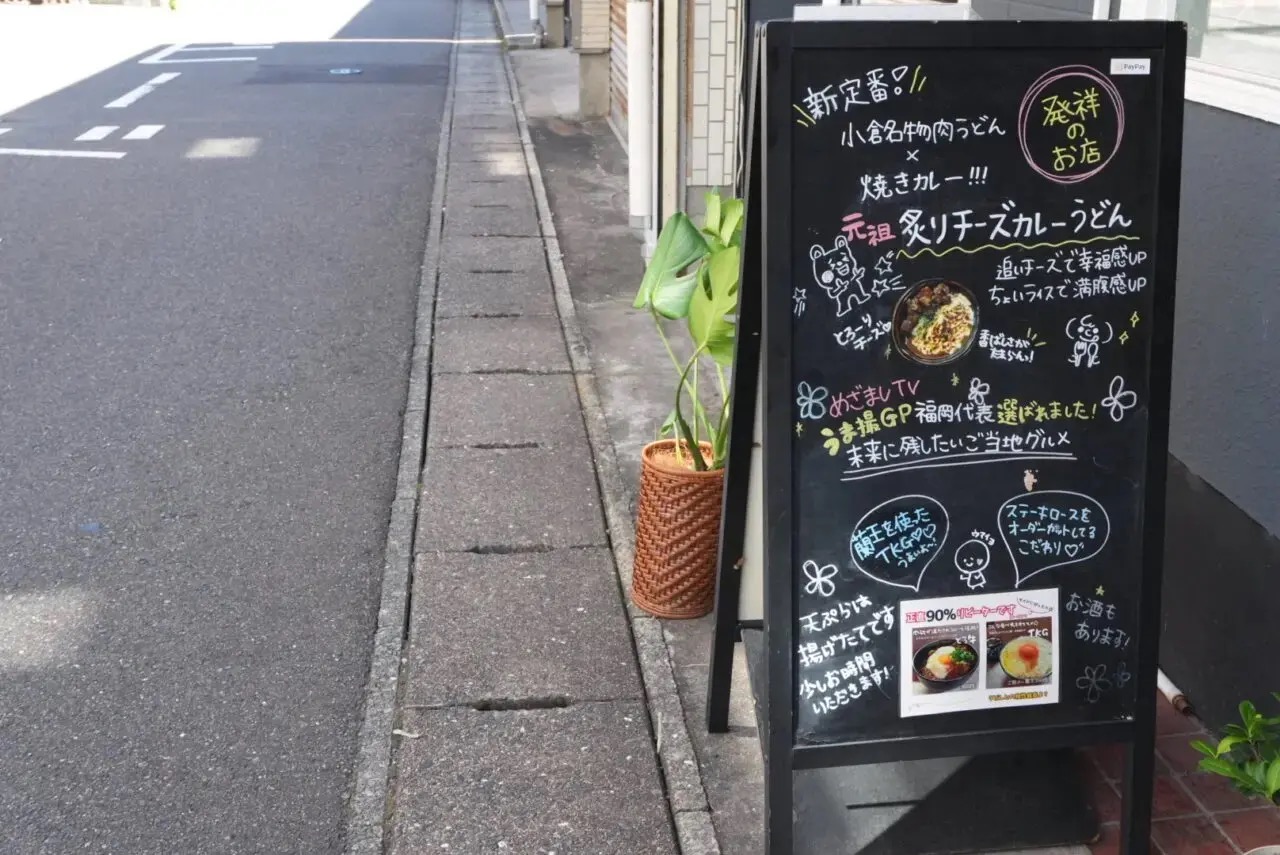 PayPay
新定番!
小倉名物肉うどん
×
焼きカレー!!!
発祥
の
お店
元祖 炙りチーズカレーうどん
追いチーズで幸福感UP
ちょいライスで満腹感UP
とろーり
チーズ♡
香ばしさが
たまらん!
めざましTV
うま撮GP 福岡代表 選ばれました!
未来に残したいご当地グルメ
蘭王を使った
TKG♡♡
うまいよ〜
ウマイヨ
ステーキロースを
オーダーカットしてる
こだわり♡
天ぷらは
揚げたてです
少しお時間
いただきます!
正直90%リピーターです
TKG
お酒も
あります!